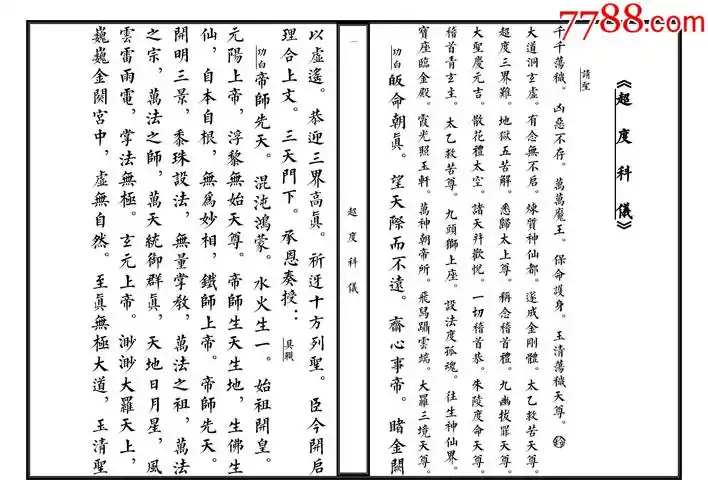 7788.com
《超度科儀》
請聖
千千蕩穢。凶惡不存。萬萬魔王。保命護身。玉清蕩穢天尊。
大道洞玄虛。有念無不启。煉質神仙都。遂成金剛體。太乙救苦天尊。
超度三界難。地獄五苦解。悉歸太上尊。稱念稽首禮。九幽拔罪天尊。
大聖慶元吉。散花禮太空。諸天拜歡悅。一切稽首恭。朱陵度命天尊。
稽首青玄主。太乙救苦尊。九頭獅上座。設法度孤魂。往生神仙界。
寶座臨金殿。霞光照玉軒。萬神朝帝所。飛舃躡雲端。大羅三境天尊。
功白
皈命朝眞。望天際而不遠。齋心事帝。睹金闕
一
超度科儀
以虛遙。恭迎三界高真。祈迓十方列聖。臣今開启
理合上文。三天門下。承恩奏授：
具職
功白
帝師先天。混沌鴻蒙。水火生一。始祖開皇。
元陽上帝，浮黎無始天尊。帝師生天生地，生佛生
仙，自本自根，無爲妙相，鐵師上帝。帝師先天。
開明三景，黍珠設法，無量掌教，萬法之祖，萬法
之宗，萬法之師，萬天統御群真，天地日月星，風
雲雷雨電，掌法無極。玄元上帝。渺渺大羅天上，
巍巍金闕宮中，虛無自然。至真無極大道，玉清聖